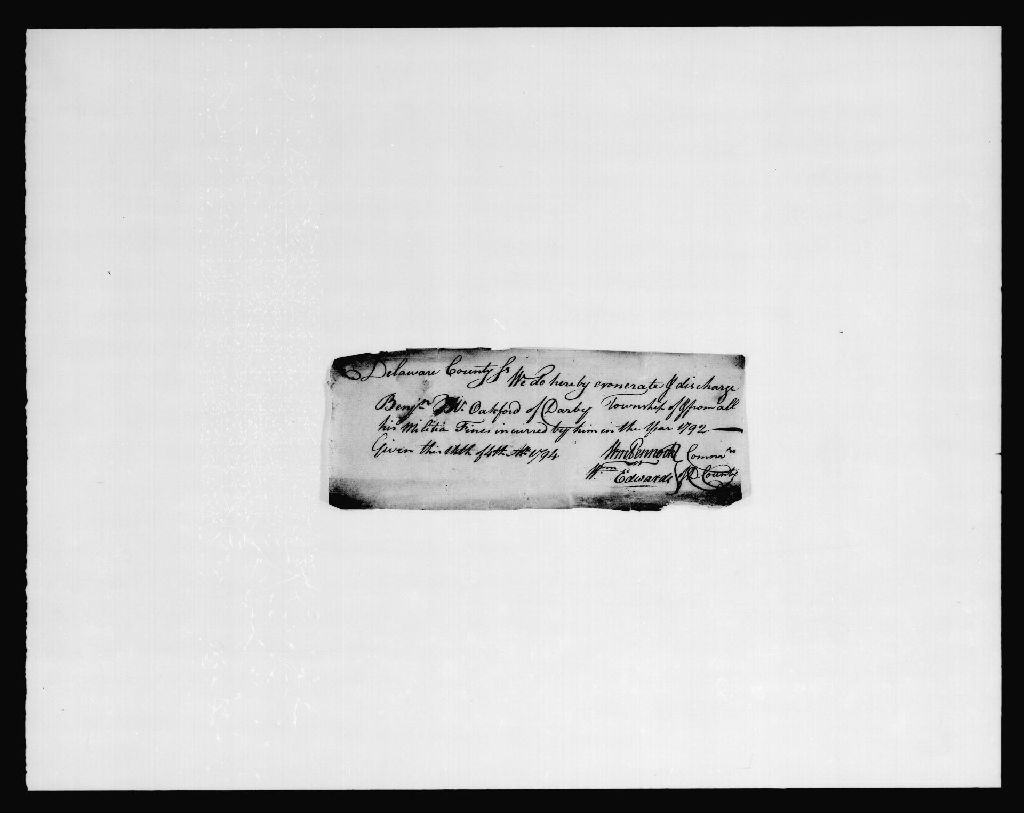 Delaware County Ss We do hereby exonerate & discharge
Benjn. W. Oakford of Darby Township of & from all
his Militia Fines incurred by him in the Year 1792
Given this of 4th Mo. 1794
Wm Pennock Commrs
Wm. Edwards of D County